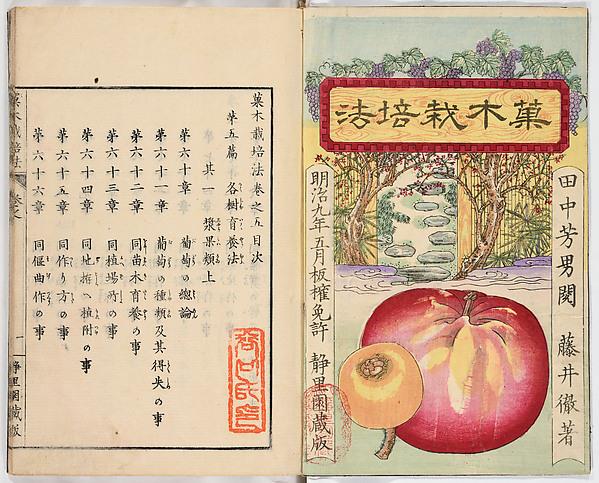 菓木栽培法
田中芳男閲
藤井徹著
明治九年五月板權免許
静里園蔵版
菓木栽培法卷之五目次
第五篇 各樹育養法
其一 漿果類上
第六十章 葡萄の總論
第六十一章 葡萄の種類及其得失の事
第六十二章 同苗木育養の事
第六十三章 同植場所の事
第六十四章 同地拵へ植附の事
第六十五章 同作り方の事
第六十六章 同偃曲作の事
菓木栽培法
卷之
一
静里園蔵版